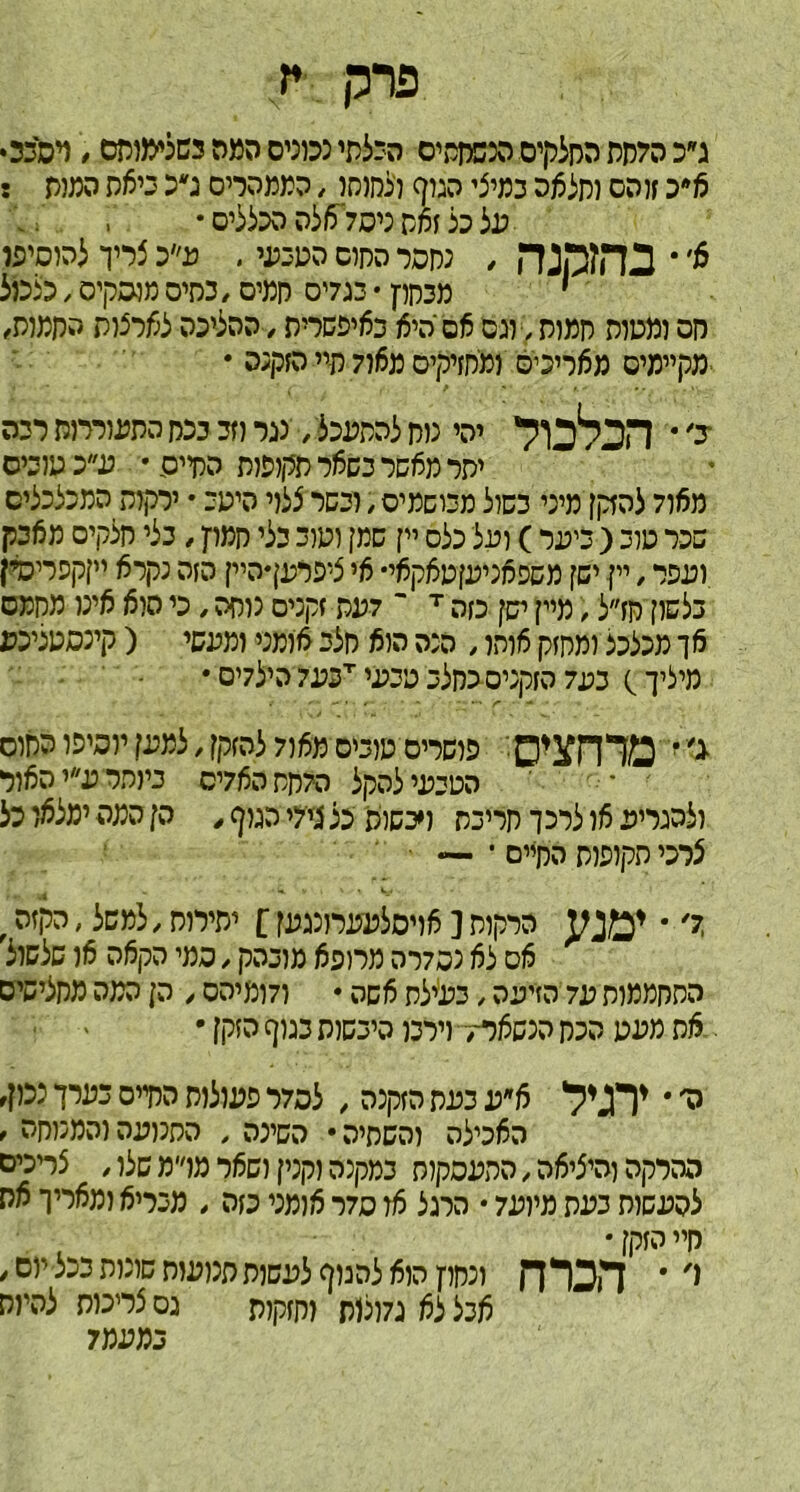 פרק יז
ג״כ הלחת החלקים הנשחתים הבלתי נכונים המה בשלימותם , ויסבב׳
א״כ זוהם וחלאה במיצי הגוף ולחותו , הממהרים ג״כ ביאת המות :
על כל זאת ניסד אלה הכללים •
א׳ • בהזקנה , נחסר החום הטבעי . ע״כ צריך להוסיפו
מבחוץ • בגדים חמים , בתים מוסקים , כלכול
חם ומטות חמות , וגם אם היא באיפשרית , ההליכה לארצות החמות,
מקיימים מאריכים ומחזיקים מאוד חיי הזקנה •
ב׳ • הכלכול יהי נוח להתעכל , נגר וזב בכח התעוררות רבה
יתר מאשר בשאר תקופות החיים • ע״כ טובים
מאוד להזקן מיני בשול מבושמים , ובשר צלוי היטב • ירקות המכלכלים
שכר טוב ( ביער ) ועל כלם יין שמן וטוב בלי חמוץ , בלי חלקים מאבק
ועפר , יין ישן משפאניען טאקאי• אי ציפרען•היין הזה נקרא ויןקפריסין
בלשון חז״ל , מיין ישן כזה ד ־ דעת זקנים נוחה , כי הוא אינו מחמם
אך מכלכל ומחזק אותו , הנה הוא חלב אומני ומעשי ( קינסטניכע
מיליך ) בעד הזקנים כחלב טבעי ־ בעד הילדים •
ג׳ • מרחצים פושרים טובים מאוד להזקן , למען יוסיפו החום
הטבעי להקל הלחת האדים ביותר ע״י האור
ולהגריע או לרכך חריבת ויבשות כל גידי הגוף , הן המה ימלאו כל
צרכי תקופות החיים • —
ד׳ • ימנע הרקות [ אויסלעערונגען ] יתירות , למשל , הקזה
אם לא נסדרה מרופא מובהק , סמי הקאה או שלשול
התחממות על הזיעה , בעילת אשה • ודומיהם , הן המה מחלישים
את מעט הכח הנשאר , וירבו היבשות בגוף הזקן •
ה׳ • ירגיל א״ע בעת הזקנה , לסדר פעולות החיים בערך נכון,
האכילה והשתיה • השינה , התנועה והמנוחה ,
ההרקה והיציאה , התעסקות במקנה וקנין ושאר מו״מ שלו , צריכים
להעשות בעת מיועד • הרגל או סדר אומני כזה , מבריא ומאריך את
חיי הזקן •
ו׳ • הכרח ונחוץ הוא להגוף לעשות תנועות שונות בכל יום ,
אבל לא גדולות וחזקות גם צריכות להיות
במעמד